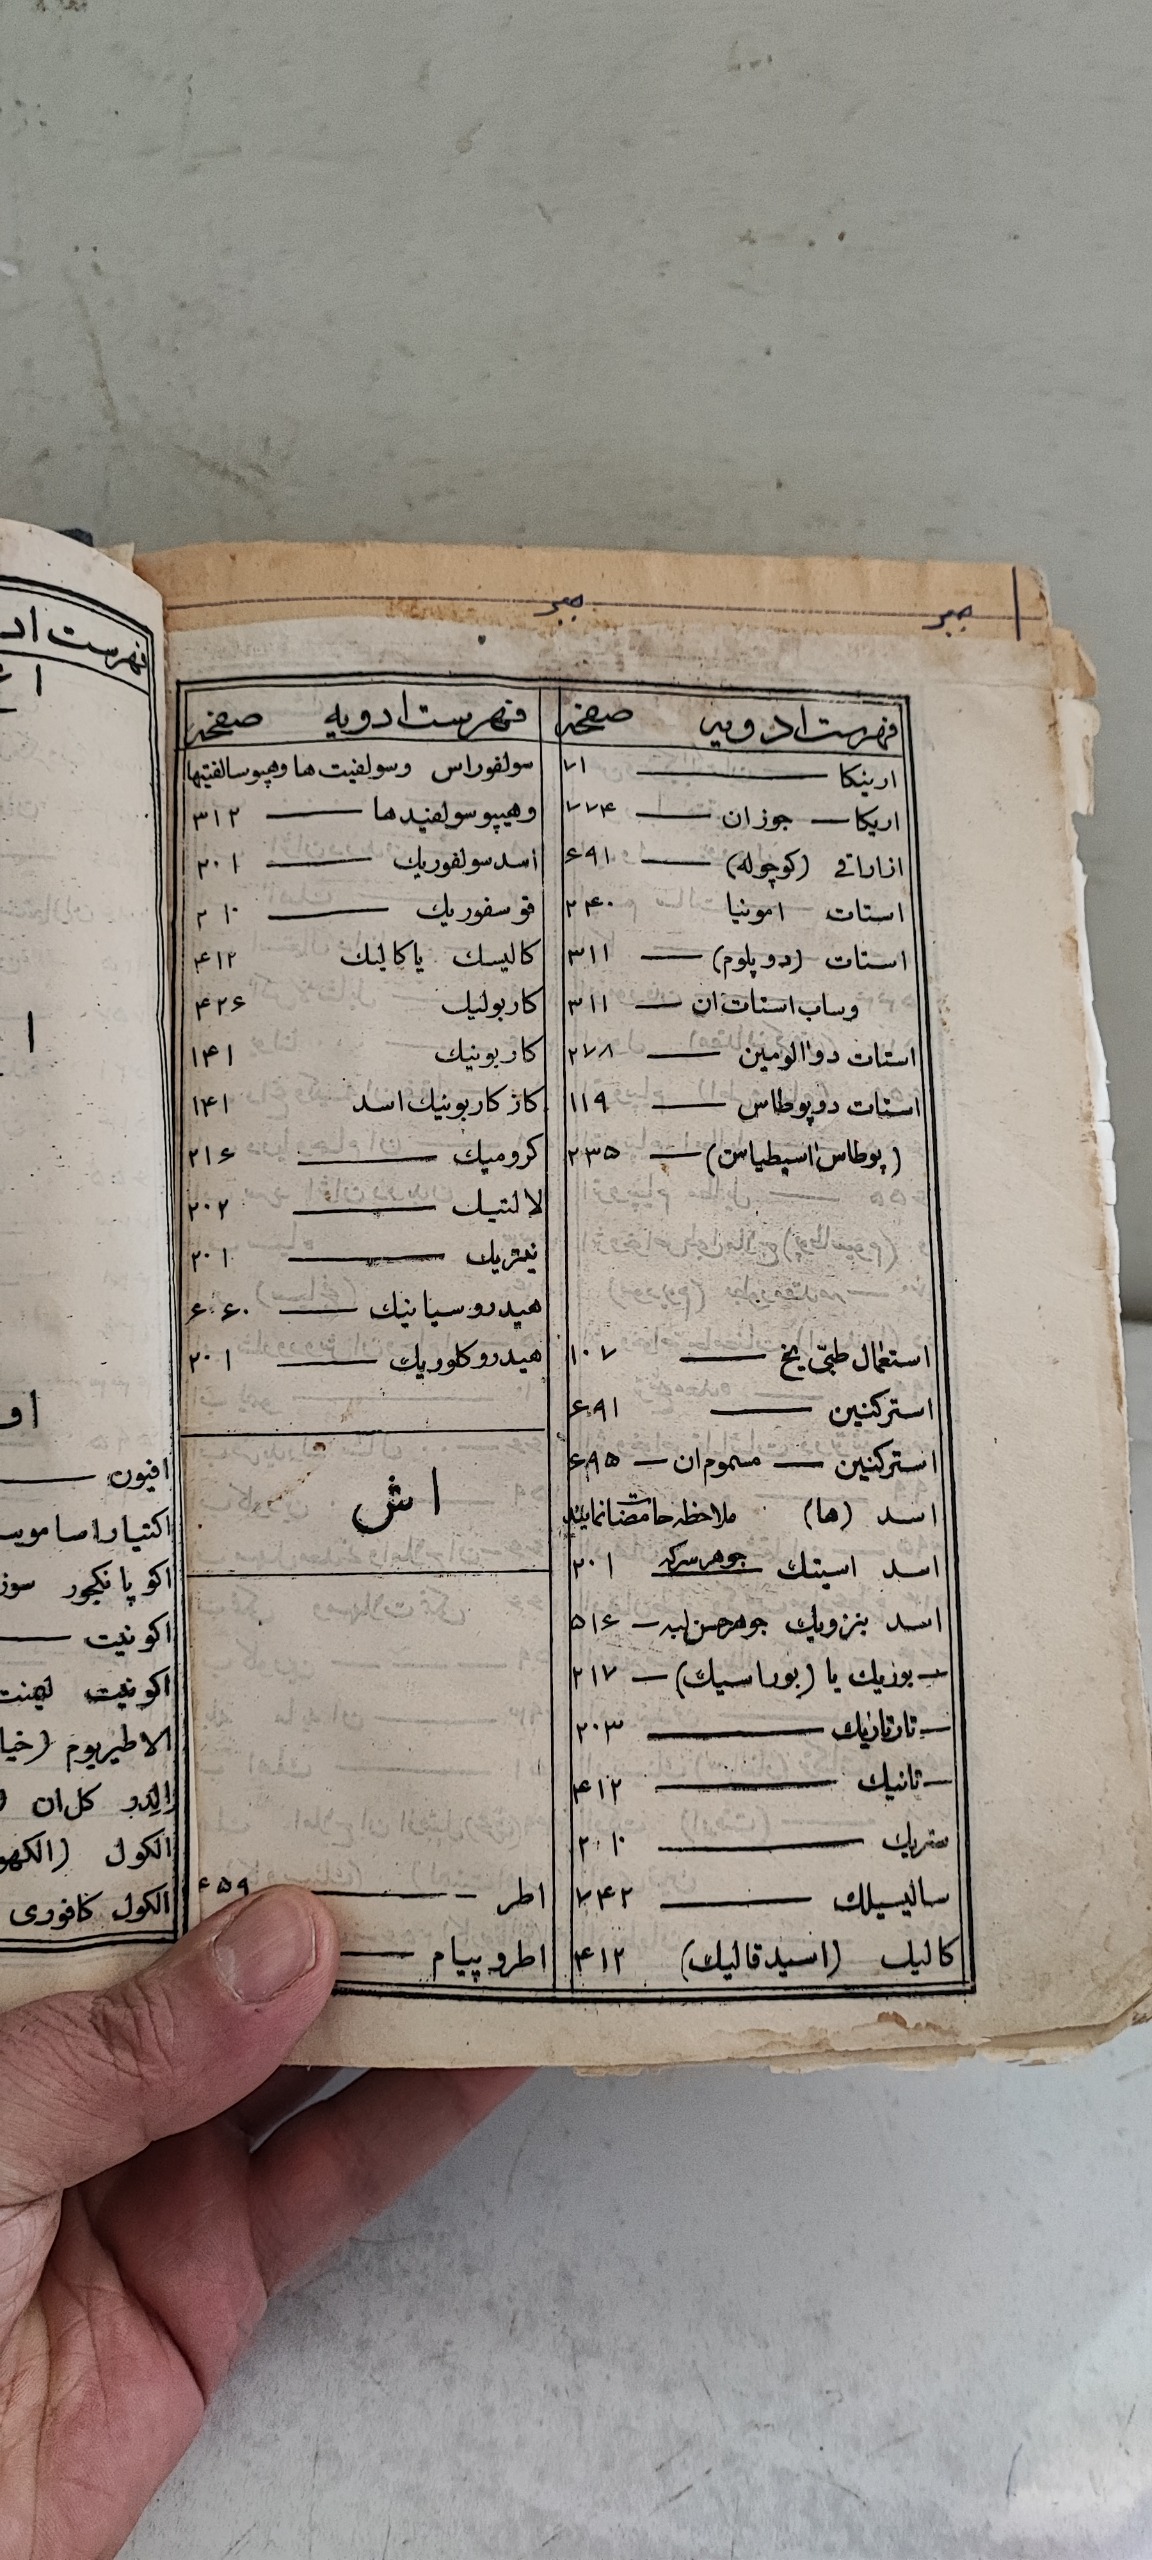 فهرست ادویه صفحه
ارنیکا ۷۱
اریکا جوزان ۷۷۴
ازاراقی (کوچوله) ۶۹۱
استات امونیا ۲۴۰
استات (دو پلوم) ۳۱۱
وساب استات ان ۳۱۱
استات دو الومین ۲۷۸
استات دو پوطاس ۱۱۹
(پوطاس اسیطیاس) ۲۳۵
استعمال طبّی یخ ۱۰۷
استرکنین ۶۹۱
استرکنین مسموم ان ۶۹۵
اسد (ها) ملاحظه حامضات نمایند
اسد استیک جوهر سرکه ۲۰۱
اسد بنزویک جوهر حسن لبه ۵۱۶
بوریک یا (بوراسیک) ۲۱۷
تارتاریک ۲۰۳
تانیک ۴۱۲
ستریک ۲۱۰
سالیسیلک ۷۴۲
کالیک (اسید قالیک) ۴۱۲
فهرست ادویه صفحه
سولفوراس وسولفیت ها وهیپوسالفتیها
وهیپو سولفیدها ۳۱۲
اسد سولفوریک ۲۰۱
فوسفوریک ۲۱۰
کالیسک یا کالیک ۴۱۲
کاربولیک ۴۲۶
کاربونیک ۱۴۱
کاز کاربونیک اسد ۱۴۱
کرومیک ۲۱۶
لالتیک ۲۰۲
نیتریک ۲۰۱
هیدروسیانیک ۶۶۰
هیدروکلوریک ۲۰۱
اش
اطر ۴۵۹
اطروپیام
فهرست اد
افیون
اکونیت
الاطیریوم
الکول
الکول کافوری